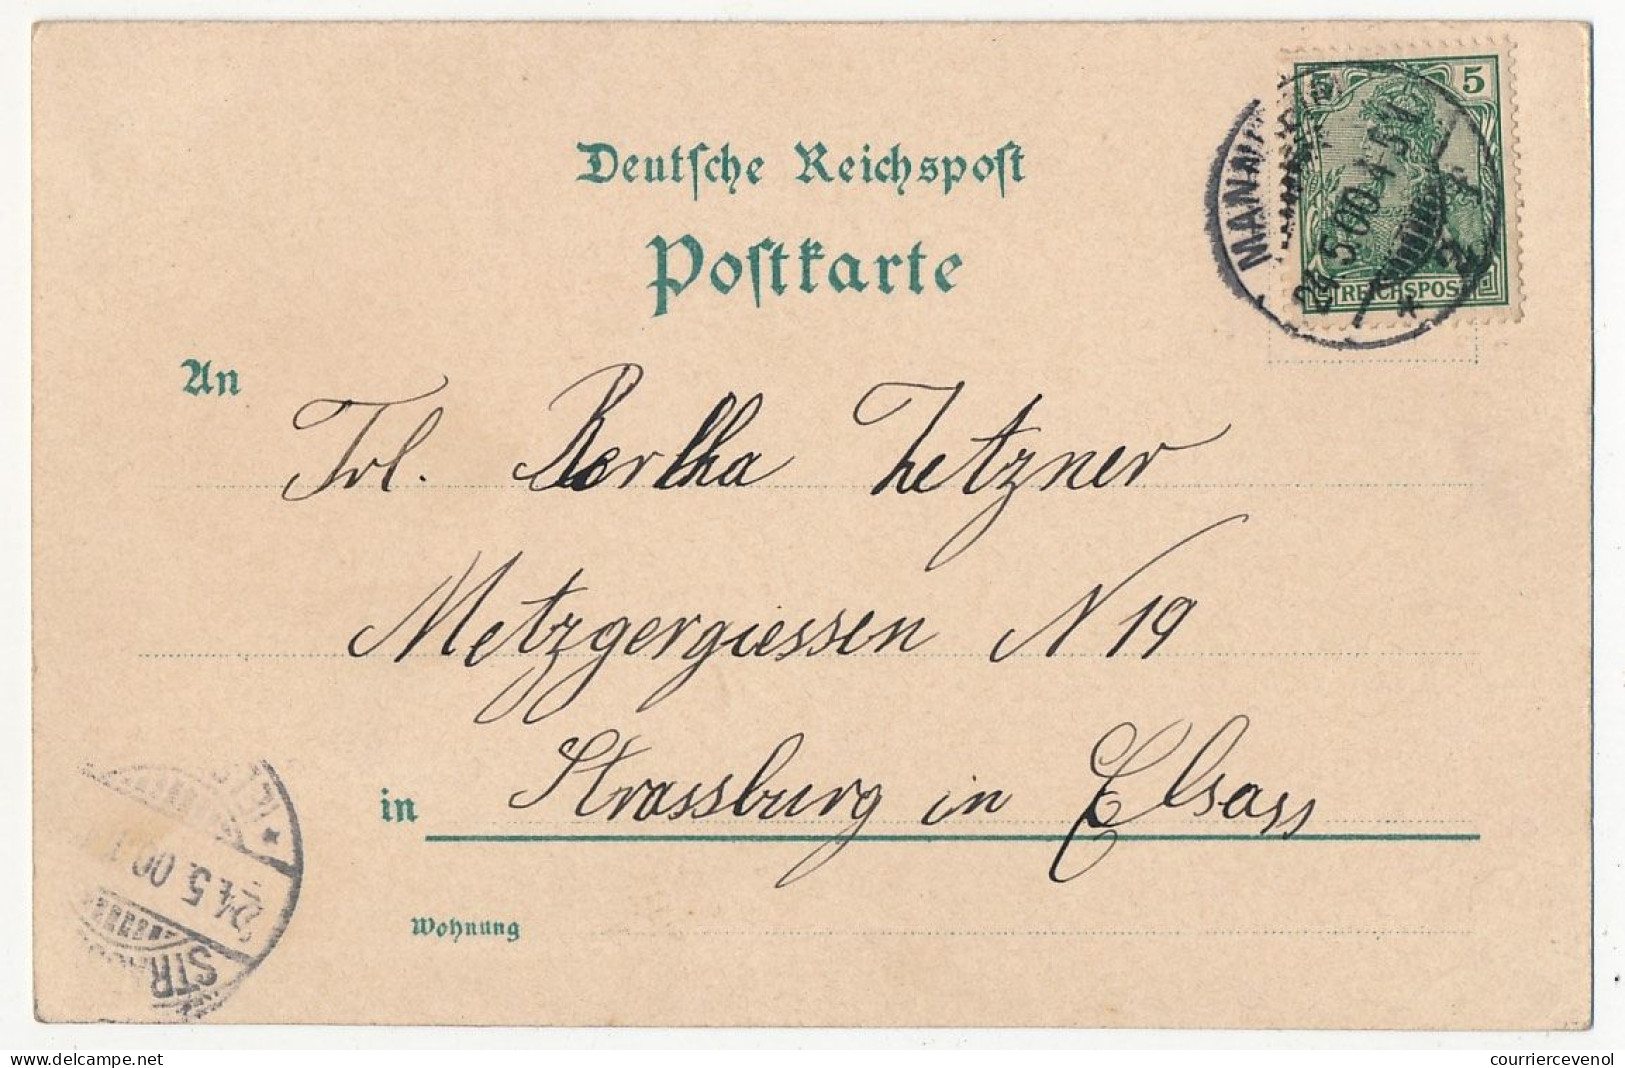 5 5
MANNHEIM
24.5.00.4-5N
* 2 *
REICHSPOST
Deutsche Reichspost
Postkarte
An
Frl. Bertha Zetzner
Metzgergiessen N 19
in Strassburg in Elsass
Wohnung
24.5.00
STR
courriercevenol